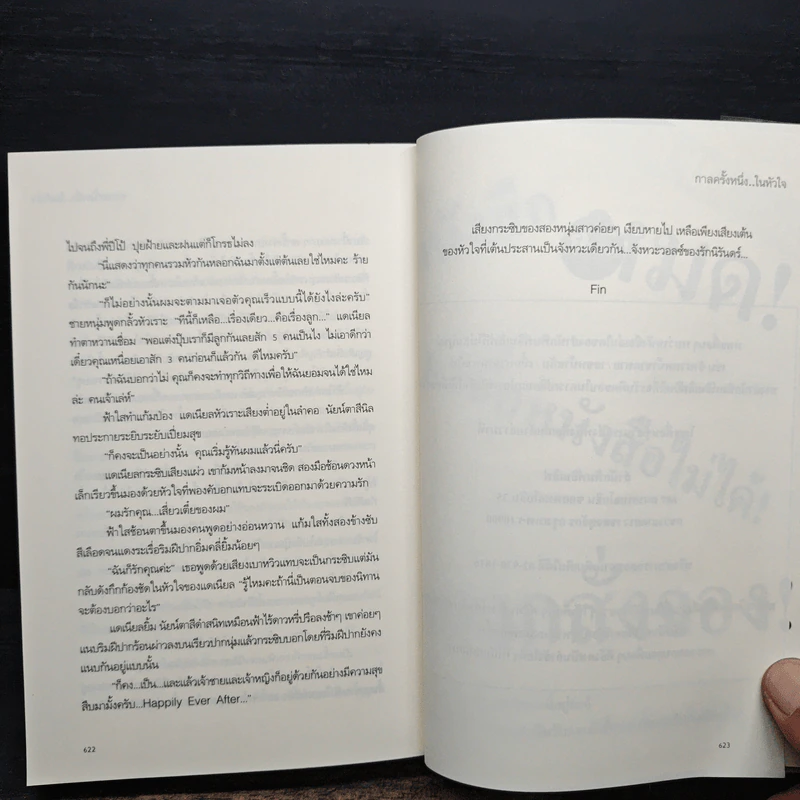 ไปจนถึงพี่ปีโป้ ปุยฝ้ายและฝนแต่ก็โกรธไม่ลง
"นี่แสดงว่าทุกคนรวมหัวกันหลอกฉันมาตั้งแต่ต้นเลยใช่ไหมคะ ร้าย
กันนักนะ"
"ก็ไม่อย่างนั้นผมจะตามมาเจอตัวคุณเร็วแบบนี้ได้ยังไงล่ะครับ"
ชายหนุ่มพูดกลั้วหัวเราะ "ทีนี้ก็เหลือ...เรื่องเดียว...คือเรื่องลูก..." แดเนียล
ทำตาหวานเชื่อม "พอแต่งปุ๊บเราก็มีลูกกันเลยสัก 5 คนเป็นไง ไม่เอาดีกว่า
เดี๋ยวคุณเหนื่อยเอาสัก 3 คนก่อนก็แล้วกัน ดีไหมครับ"
"ถ้าฉันบอกว่าไม่ คุณก็คงจะทำทุกวิถีทางเพื่อให้ฉันยอมจนได้ใช่ไหม
ล่ะ คนเจ้าเล่ห์"
ฟ้าใสทำแก้มป่อง แดเนียลหัวเราะเสียงต่ำอยู่ในลำคอ นัยน์ตาสีนิล
ทอประกายระยิบระยับเปี่ยมสุข
"ก็คงจะเป็นอย่างนั้น คุณเริ่มรู้ทันผมแล้วนี่ครับ"
แดเนียลกระซิบเสียงแผ่ว เขาก้มหน้าลงมาจนชิด สองมือช้อนดวงหน้า
เล็กเรียวขึ้นมองด้วยหัวใจที่พองคับอกแทบจะระเบิดออกมาด้วยความรัก
"ผมรักคุณ...เสี่ยวเตี๋ยของผม"
ฟ้าใสช้อนตาขึ้นมองคนพูดอย่างอ่อนหวาน แก้มใสทั้งสองข้างซับ
สีเลือดจนแดงระเรื่อริมฝีปากอิ่มคลี่ยิ้มน้อยๆ
"ฉันก็รักคุณค่ะ" เธอพูดด้วยเสียงเบาหวิวแทบจะเป็นกระซิบแต่มัน
กลับดังกึกก้องชัดในหัวใจของแดเนียล "รู้ไหมคะถ้านี่เป็นตอนจบของนิทาน
จะต้องบอกว่าอะไร"
แดเนียลยิ้ม นัยน์ตาสีดำสนิทเหมือนฟ้าไร้ดาวหรี่ปรือลงช้าๆ เขาค่อยๆ
แนบริมฝีปากร้อนผ่าวลงบนเรียวปากนุ่มแล้วกระซิบบอกโดยที่ริมฝีปากยังคง
แนบกันอยู่แบบนั้น
"ก็คง...เป็น...และแล้วเจ้าชายและเจ้าหญิงก็อยู่ด้วยกันอย่างมีความสุข
สืบมามั้งครับ...Happily Ever After..."
622
กาลครั้งหนึ่ง..ในหัวใจ
เสียงกระซิบของสองหนุ่มสาวค่อยๆ เงียบหายไป เหลือเพียงเสียงเต้น
ของหัวใจที่เต้นประสานเป็นจังหวะเดียวกัน...จังหวะวอลซ์ของรักนิรันดร์...
Fin
623